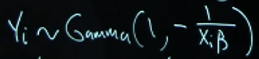 Y_i ~ Gamma(1, -1/(X_i β))